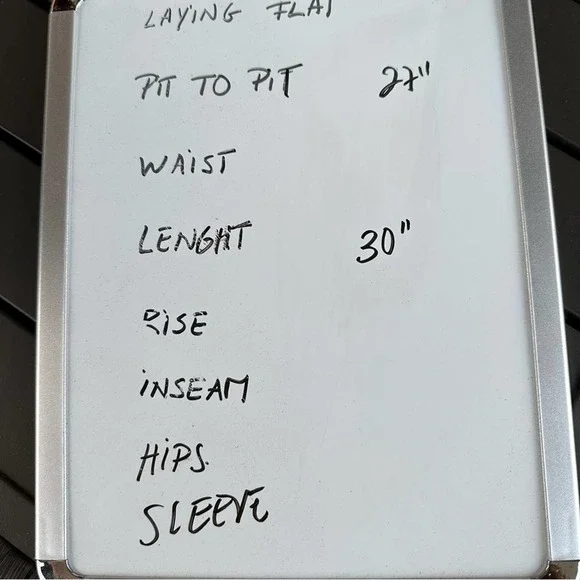 LAYING FLAT
PIT TO PIT 27"
WAIST
LENGHT 30"
RISE
INSEAM
HIPS.
SLEEVE